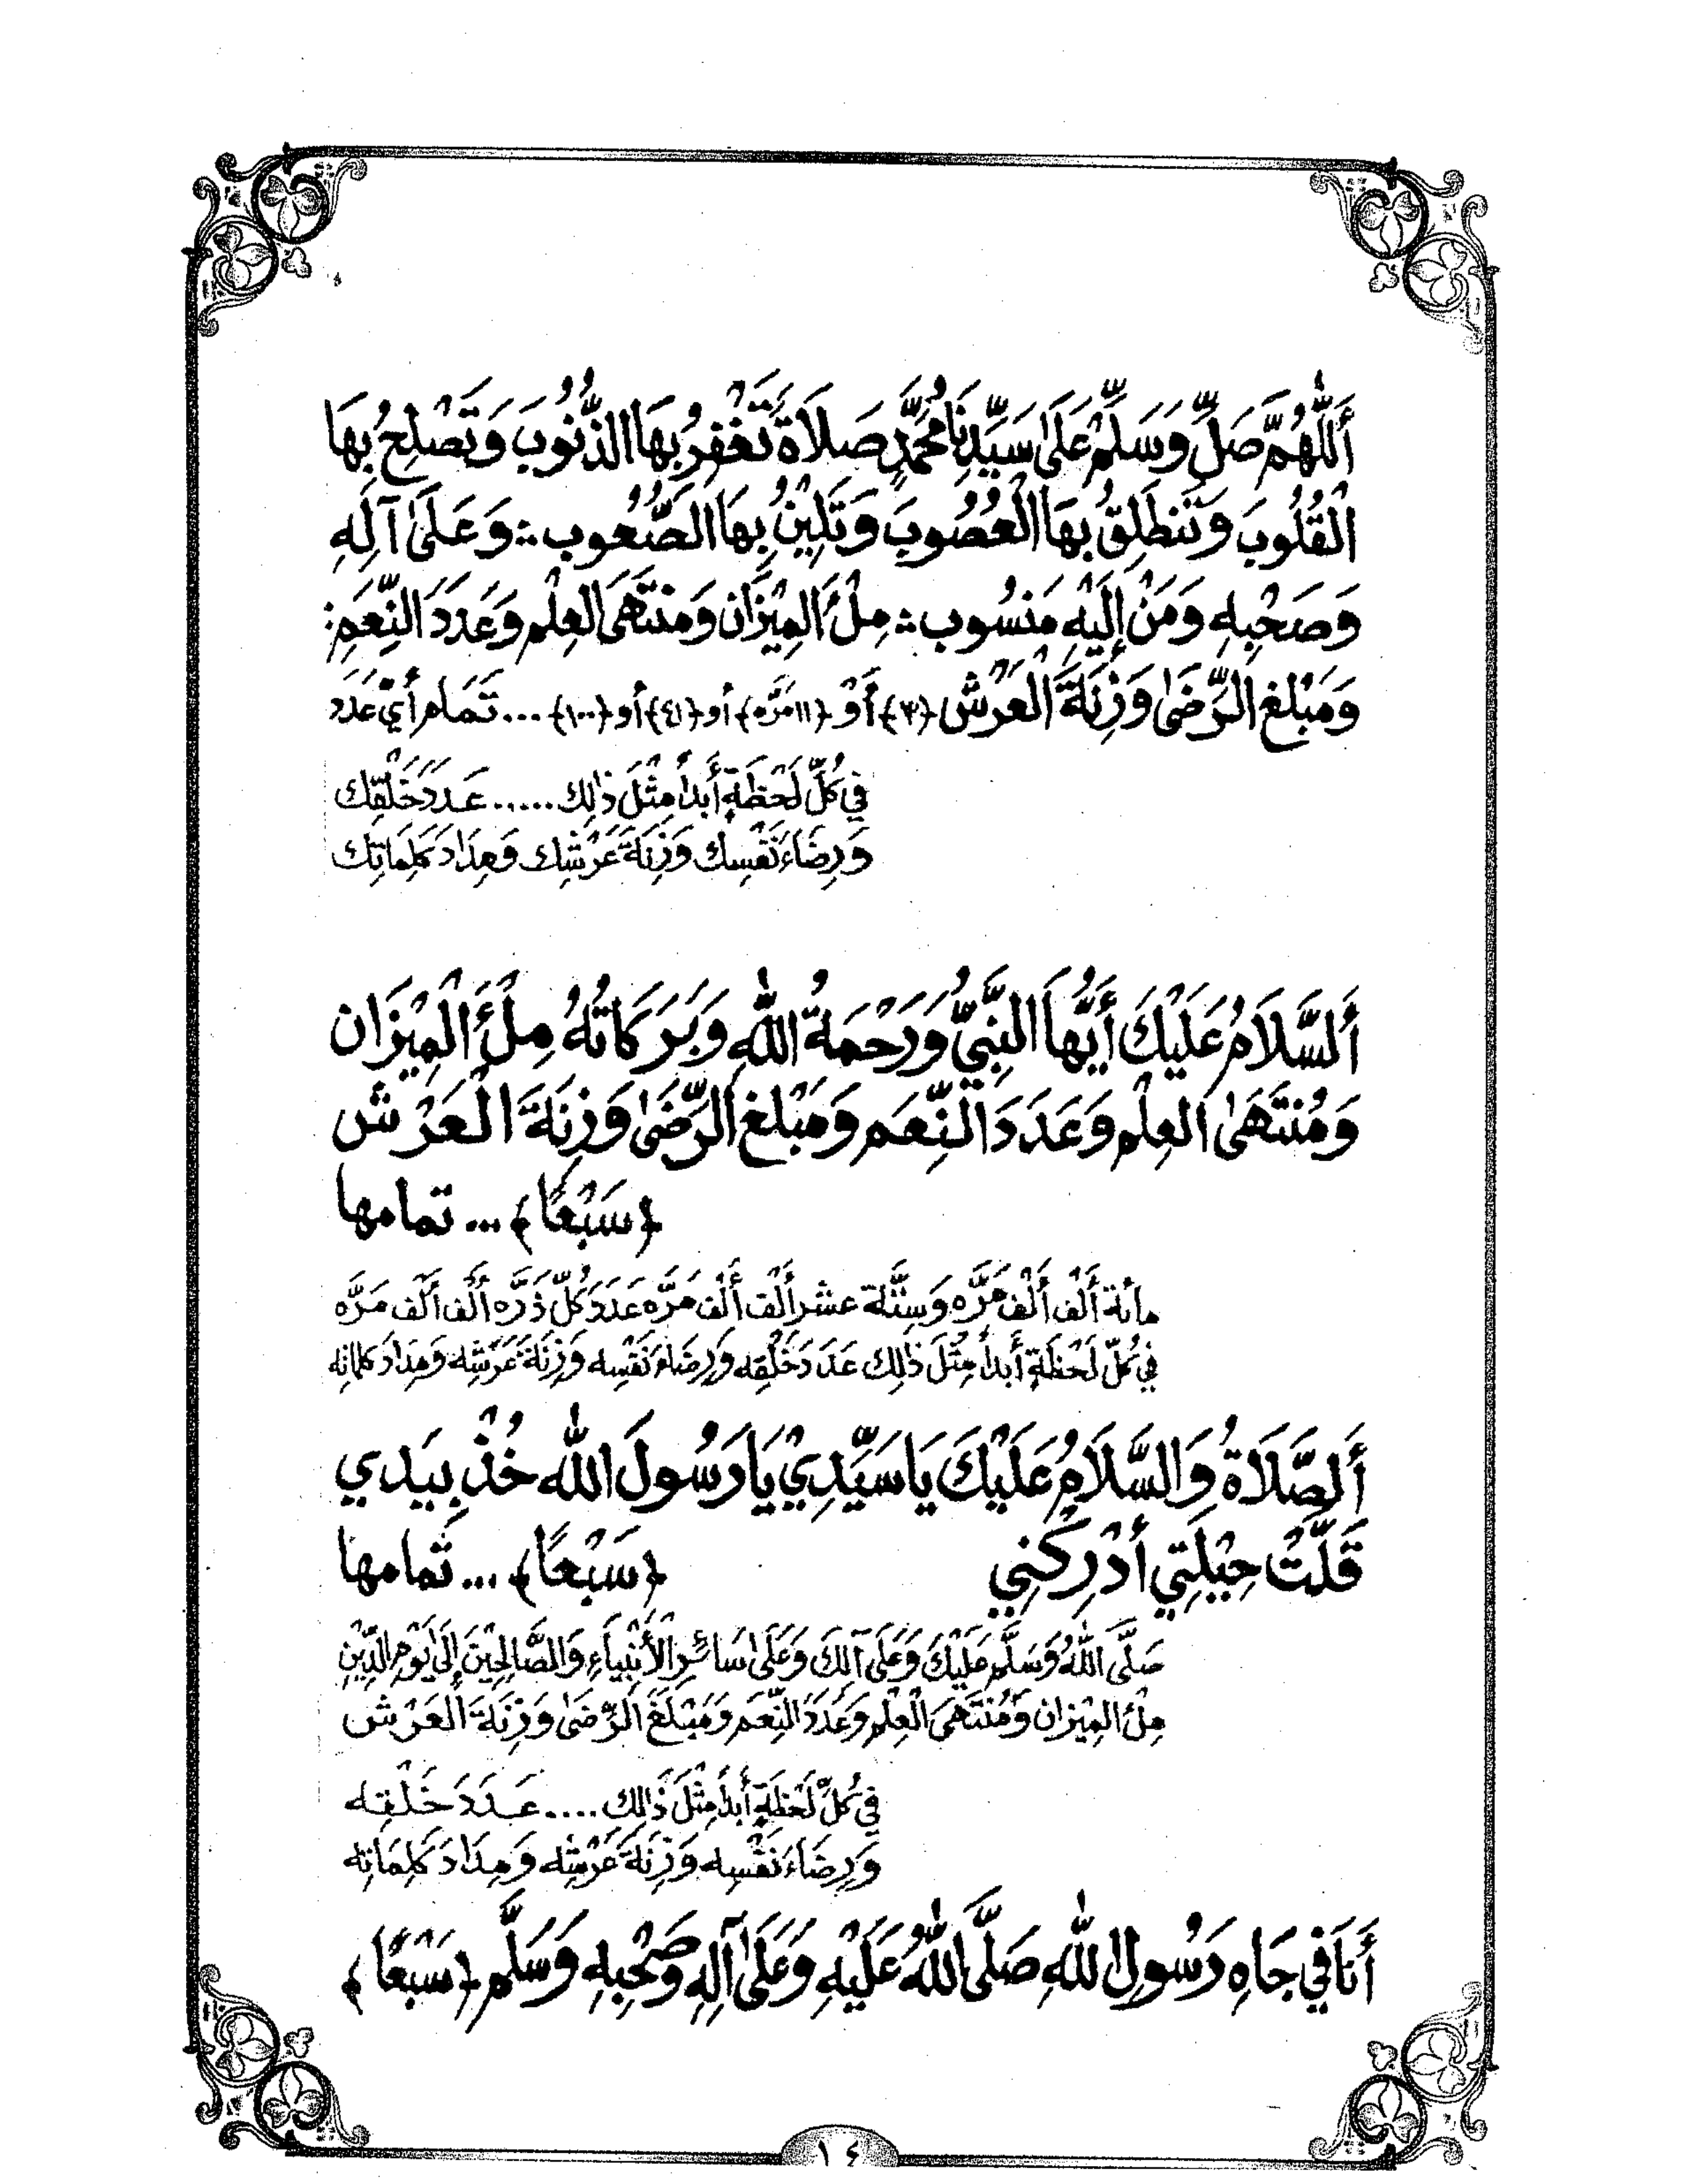 أَللَّهُمَّ صَلِّ وَسَلِّمْ عَلَىٰ سَيِّدِنَا مُحَمَّدٍ صَلَاةً تَغْفِرُ بِهَا الذُّنُوبَ وَتَصْلِحُ بِهَا
الْقُلُوبَ وَتَنطَلِقُ بِهَا الْعُصُوبَ وَتَلِيْنُ بِهَا الصُّعُوب ؞ وَعَلَىٰ آلِهِ
وَصَحْبِهِ وَمَنْ إِلَيْهِ مَنْسُوب ؞ مِلْءَ الْمِيْزَان وَمُنتَهَى الْعِلْم وَعَدَدَ النِّعَم :
وَمَبْلَغ الرِّضَىٰ وَزِنَةَ الْعَرْش ﴿٣﴾ أَوْ ﴿١١ مَرَّه﴾ أو ﴿٤١﴾ أو ﴿١٠٠﴾ ... تَمَام أَيّ عَدَد
فِي كُلِّ لَحْظَةٍ أَبَداً مِثْلَ ذٰلِك ...... عَدَدَ خَلْقِك
وَرِضَاءَ نَفْسِك وَزِنَةَ عَرْشِك وَمِدَادَ كَلِمَاتِك
أَلسَّلَامُ عَلَيْكَ أَيُّهَا النَّبِيُّ وَرَحْمَةُ اللهِ وَبَرَكَاتُهُ مِلْءَ الْمِيْزَان
وَمُنتَهَىٰ الْعِلْم وَعَدَدَ النِّعَم وَمَبْلَغ الرِّضَىٰ وَزِنَةَ الْعَرْش
﴿سَبْعًا﴾ ... تمامها
مائة أَلْف أَلْف مَرَّه وَسِتَّة عشر أَلْف أَلْف مَرَّه عَدَدَ كُلّ ذَرَّه أَلْف أَلْف مَرَّه
فِي كُلِّ لَحْظَةٍ أَبَداً مِثْلَ ذٰلِك عَدَدَ خَلْقِه وَرِضَاءَ نَفْسِه وَزِنَةَ عَرْشِه وَمِدَادَ كَلِمَاتِه
أَلصَّلَاةُ وَالسَّلَامُ عَلَيْكَ يَا سَيِّدِيْ يَا رَسُولَ الله خُذْ بِيَدِي
قَلَّتْ حِيْلَتِي أَدْرِكْنِي ﴿سَبْعًا﴾ ... تَمامها
صَلَّى اللهُ وَسَلَّم عَلَيْكَ وَعَلَى آلِكَ وَعَلَىٰ سَائِرِ الْأَنْبِيَاءِ وَالصَّالِحِيْنَ إِلَىٰ يَوْمِ الدِّيْنِ
مِلْءَ الْمِيْزَان وَمُنْتَهَىَ الْعِلْم وَعَدَدَ النِّعَم وَمَبْلَغَ الرِّضَىٰ وَزِنَةَ الْعَرْش
فِي كُلِّ لَحْظَةٍ أَبَداً مِثْلَ ذَالِك .... عَدَدَ خَلْقِه
وَرِضَاءَ نَفْسِه وَزِنَةَ عَرْشِه وَمِدَادَ كَلِمَاتِه
أَنَا فِي جَاهِ رَسُولِ اللهِ صَلَّى اللهُ عَلَيْهِ وَعَلَىٰ آلِهِ وَصَحْبِهِ وَسَلَّم ﴿سَبْعًا﴾
١٤